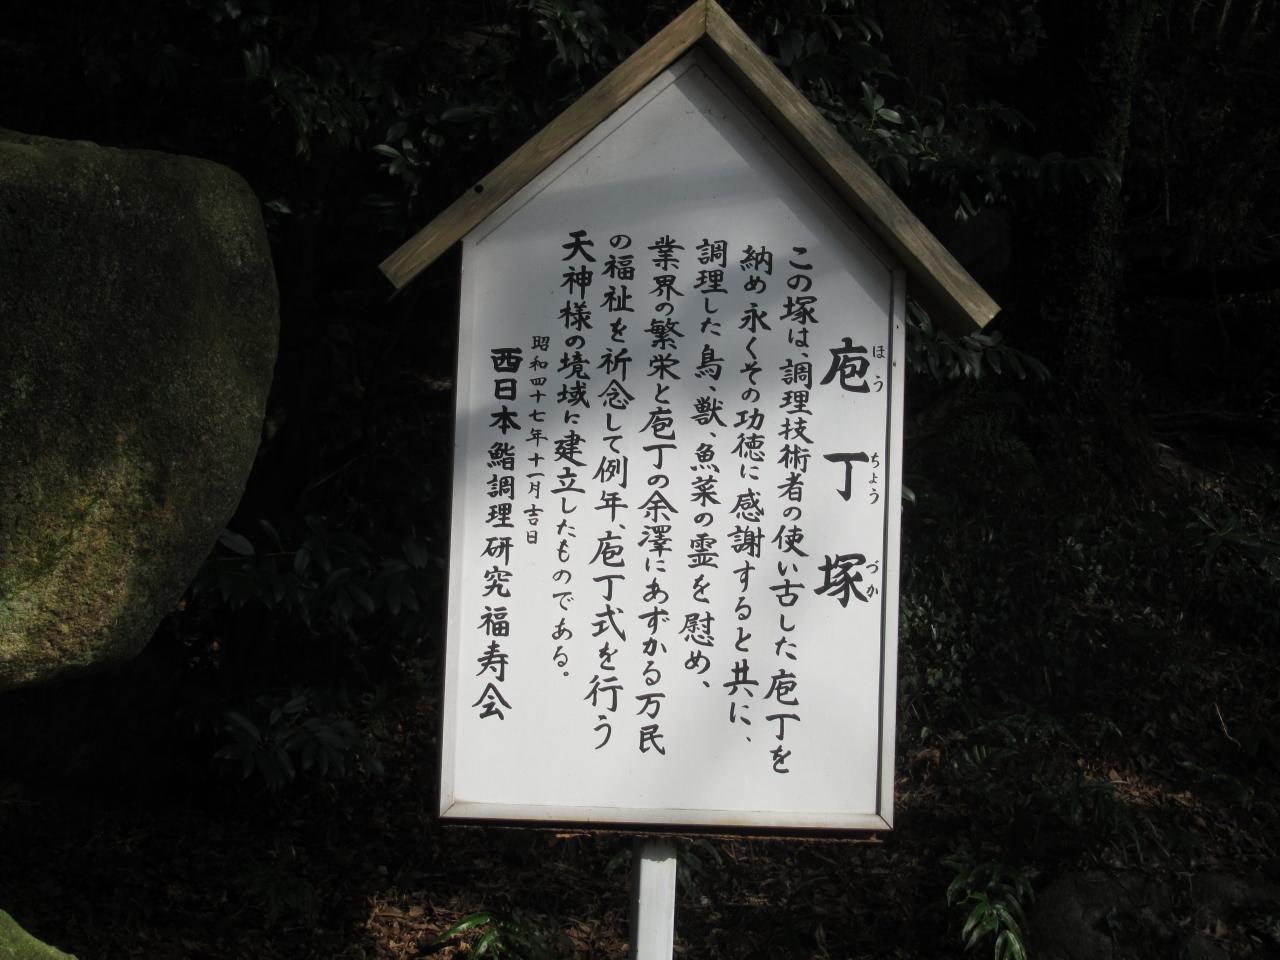 庖丁塚
ほうちょうづか
この塚は、調理技術者の使い古した庖丁を
納め永くその功徳に感謝すると共に、
調理した鳥、獣、魚菜の霊を慰め、
業界の繁栄と庖丁の余澤にあずかる万民
の福祉を祈念して例年、庖丁式を行う
天神様の境域に建立したものである。
昭和四十七年十一月吉日
西日本鮨調理研究福寿会